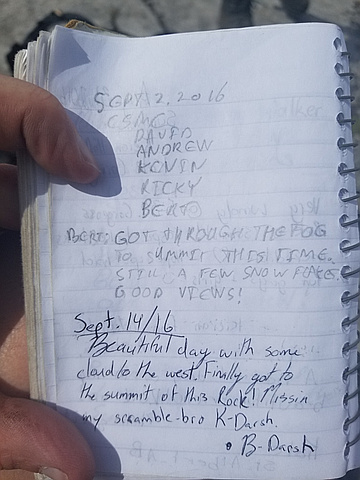 SEPT 2. 2016
CSMC:
DAVID
ANDREW
KEVIN
RICKY
BERT
BERT: GOT THROUGH THE FOG
TO SUMMIT THIS TIME.
STILL A FEW SNOW FLAKES
GOOD VIEWS!
Sept. 14/16
Beautiful day with some
cloud to the west. Finally got to
the summit of this Rock! Missin
my scramble-bro K-Darsh.
• B-Darsh